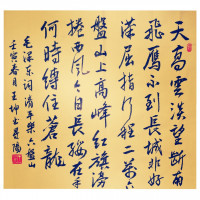 天高雲淡望斷南
飛雁不到長城非好
漢屈指行程二萬六
盤山上高峰紅旗漫
捲西風今日長纓在手
何時縛住蒼龍
毛澤東詞清平樂六盤山
壬寅春月王坤書